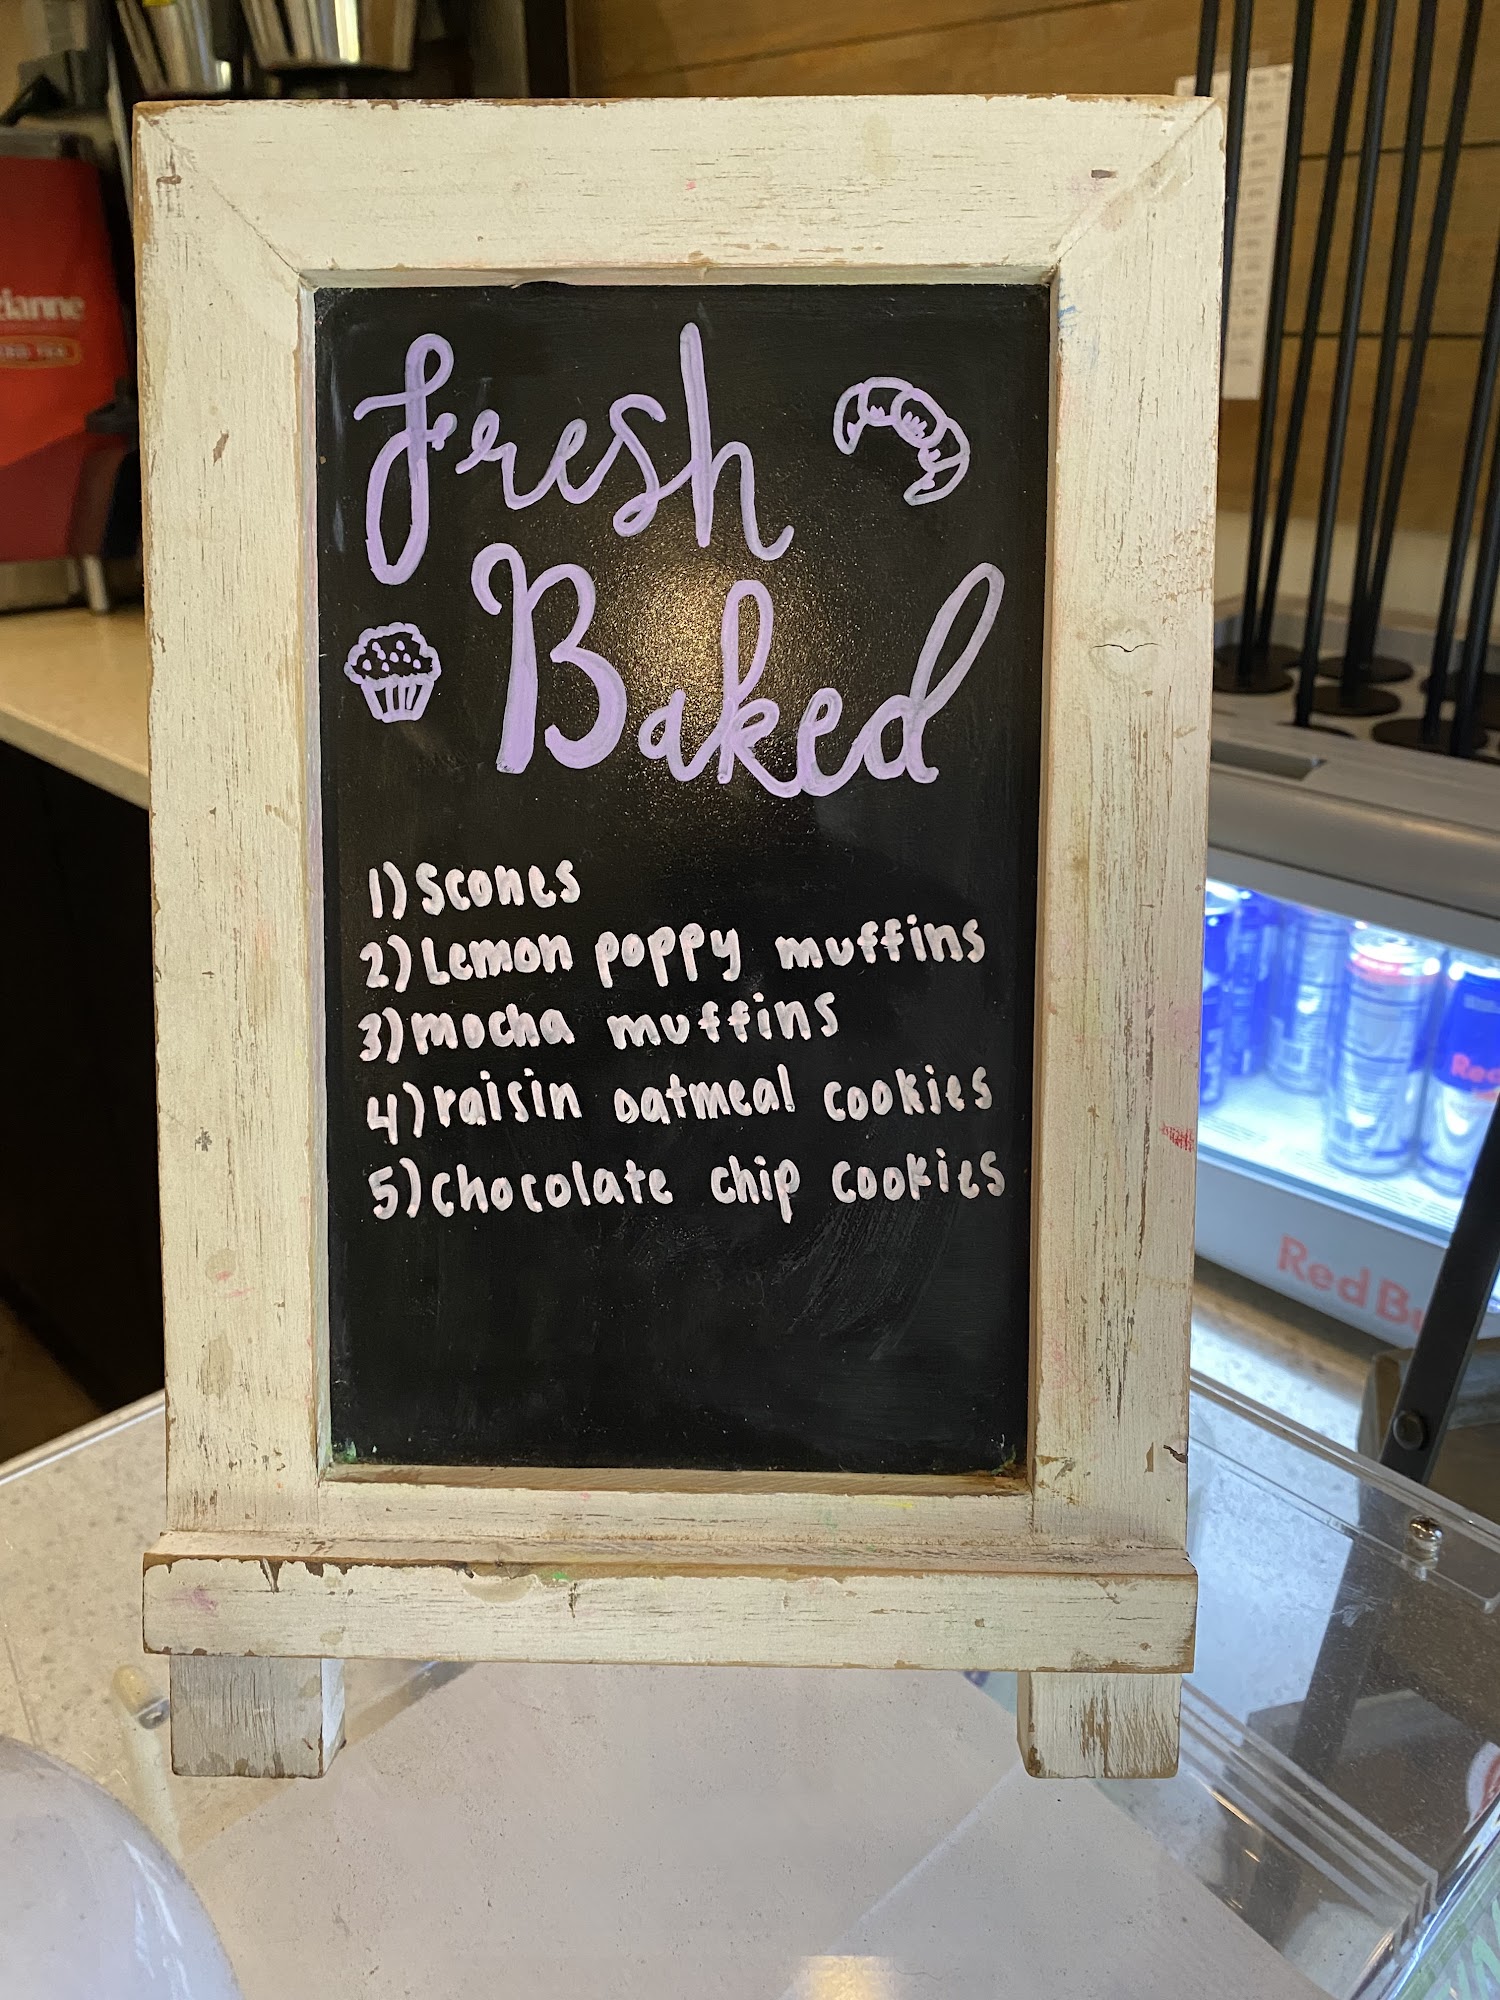 Fresh
Baked
1) Scones
2) Lemon poppy muffins
3) mocha muffins
4) raisin oatmeal cookies
5) chocolate chip cookies
Red